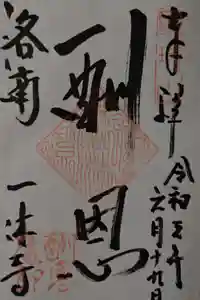 奉拝
令和三年
六月十九日
酬恩
洛南
一休寺